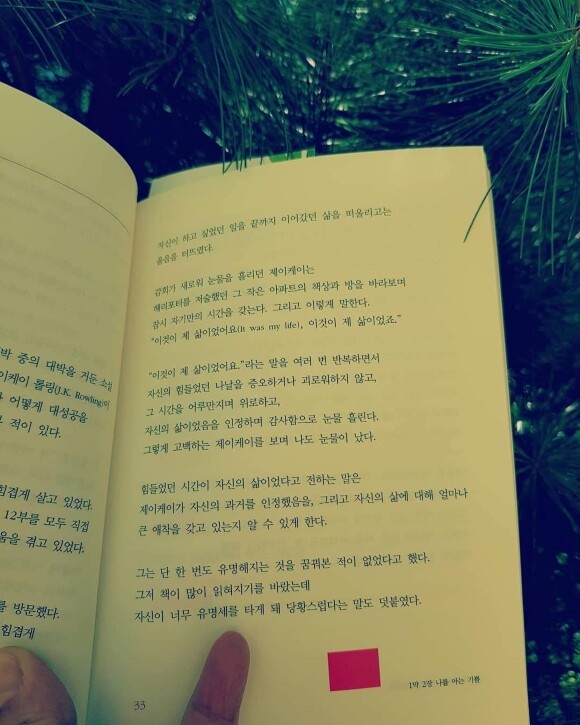 박 중의 대박을 거둔 소설
이케이 롤링(J.K. Rowling)이
어떻게 대성공을
적이 있다.
힘겹게 살고 있었다.
12부를 모두 직접
움을 겪고 있었다.
를 방문했다.
힘겹게
자신이 하고 싶었던 일을 끝까지 이어갔던 삶을 떠올리고는
울음을 터뜨렸다.
감회가 새로워 눈물을 흘리던 제이케이는
해리포터를 저술했던 그 작은 아파트의 책상과 방을 바라보며
잠시 자기만의 시간을 갖는다. 그리고 이렇게 말한다.
“이것이 제 삶이었어요(It was my life), 이것이 제 삶이었죠.”
“이것이 제 삶이었어요.”라는 말을 여러 번 반복하면서
자신의 힘들었던 나날을 증오하거나 괴로워하지 않고,
그 시간을 어루만지며 위로하고,
자신의 삶이었음을 인정하며 감사함으로 눈물 흘린다.
그렇게 고백하는 제이케이를 보며 나도 눈물이 났다.
힘들었던 시간이 자신의 삶이었다고 전하는 말은
제이케이가 자신의 과거를 인정했음을, 그리고 자신의 삶에 대해 얼마나
큰 애착을 갖고 있는지 알 수 있게 한다.
그는 단 한 번도 유명해지는 것을 꿈꿔본 적이 없었다고 했다.
그저 책이 많이 읽혀지기를 바랐는데
자신이 너무 유명세를 타게 돼 당황스럽다는 말도 덧붙였다.
1막 2장 나를 아는 기쁨
33